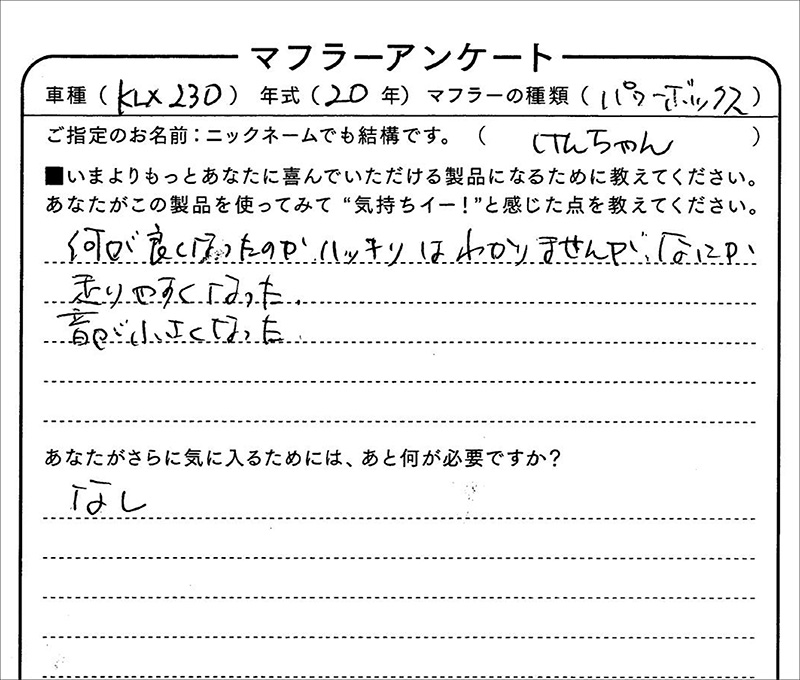 マフラーアンケート
車種（KLX230） 年式（20年） マフラーの種類（パワーボックス）
ご指定のお名前：ニックネームでも結構です。（ けんちゃん ）
■いまよりもっとあなたに喜んでいただける製品になるために教えてください。
あなたがこの製品を使ってみて “気持ちイー！”と感じた点を教えてください。
何が良くなったのかハッキリはわかりませんが、なにか
走りやすくなった。
音が小さくなった
あなたがさらに気に入るためには、あと何が必要ですか？
なし